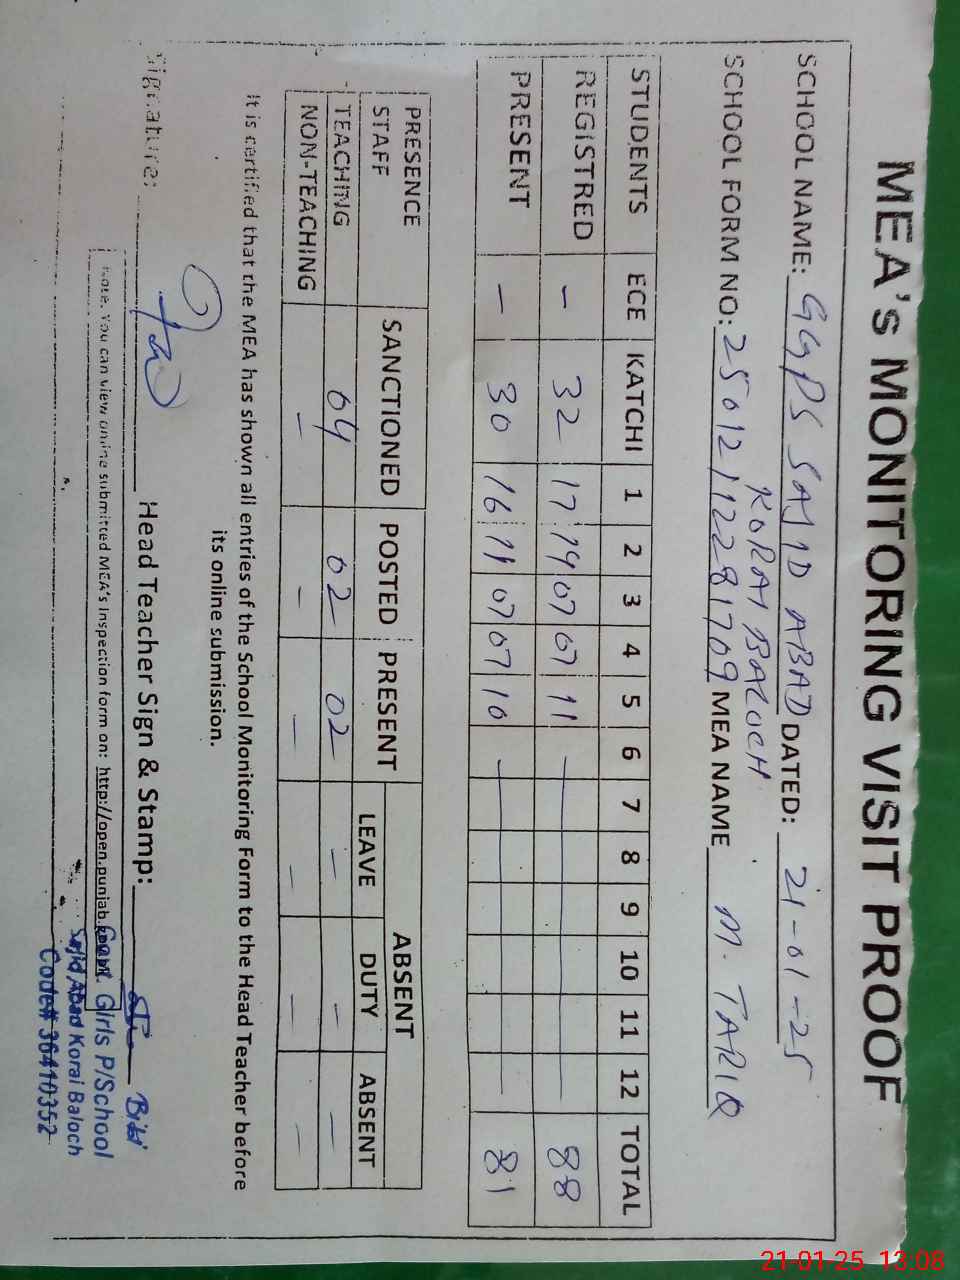 MEA's MONITORING VISIT PROOF
SCHOOL NAME: GGPS SAJID ABAD DATED: 21-01-25
KORAI BALOCH
SCHOOL FORM NO: 25012112281709 MEA NAME M. TARIQ
STUDENTS ECE KATCHI 1 2 3 4 5 6 7 8 9 10 11 12 TOTAL
REGISTRED - 32 17 14 07 07 11 — 88
PRESENT - 30 16 11 07 07 10 — 81
PRESENCE STAFF SANCTIONED POSTED PRESENT ABSENT
LEAVE DUTY ABSENT
TEACHING 04 02 02 - - -
NON-TEACHING - - - - - -
It is certified that the MEA has shown all entries of the School Monitoring Form to the Head Teacher before
its online submission.
Signature: Head Teacher Sign & Stamp: Bibi
Note: You can view online submitted MEA's Inspection form on: http://open.punjab.
Govt. Girls P/School
Sajid Abad Korai Baloch
Code# 36410352
21-01-25 13:08